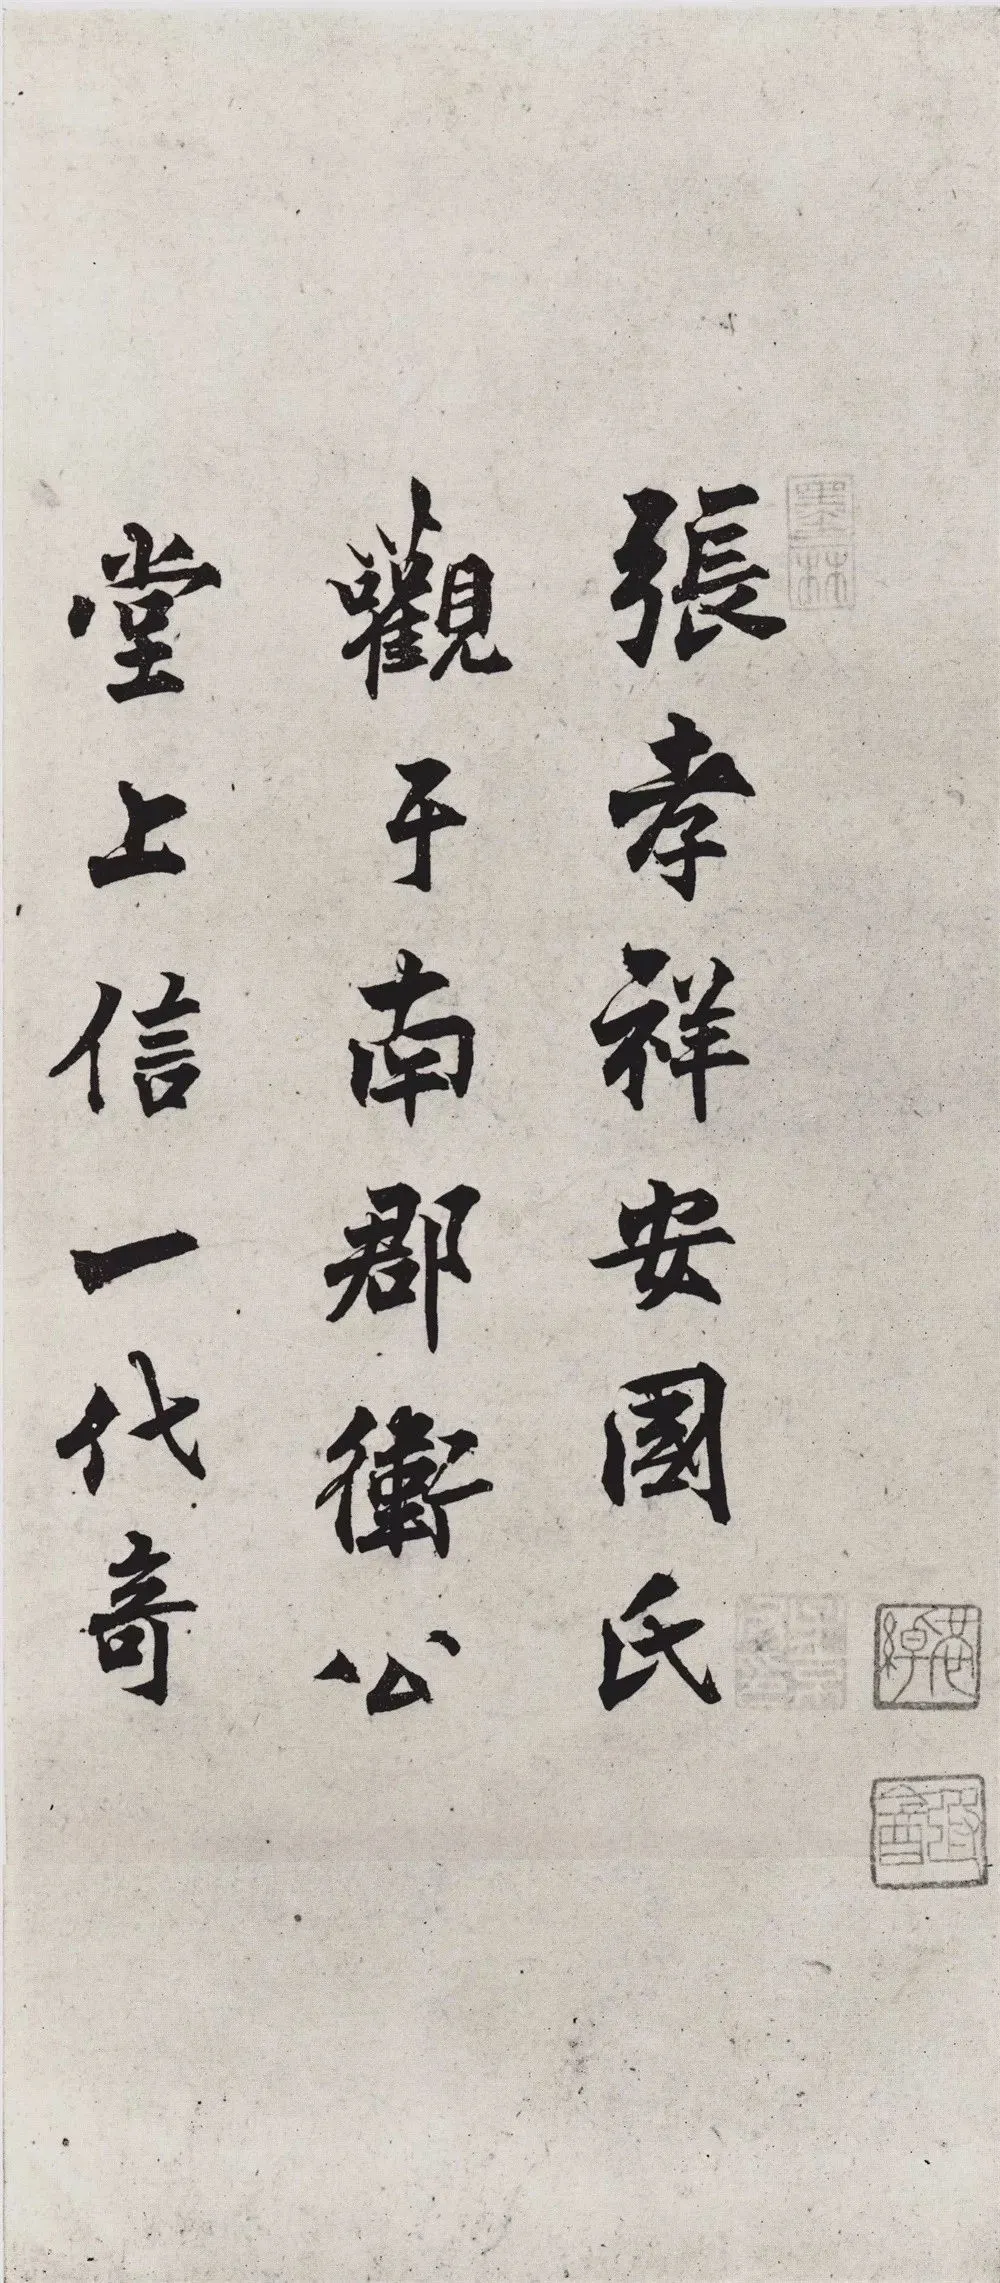 張孝祥安國氏
觀于南郡衛公
堂上信一代奇
墨林